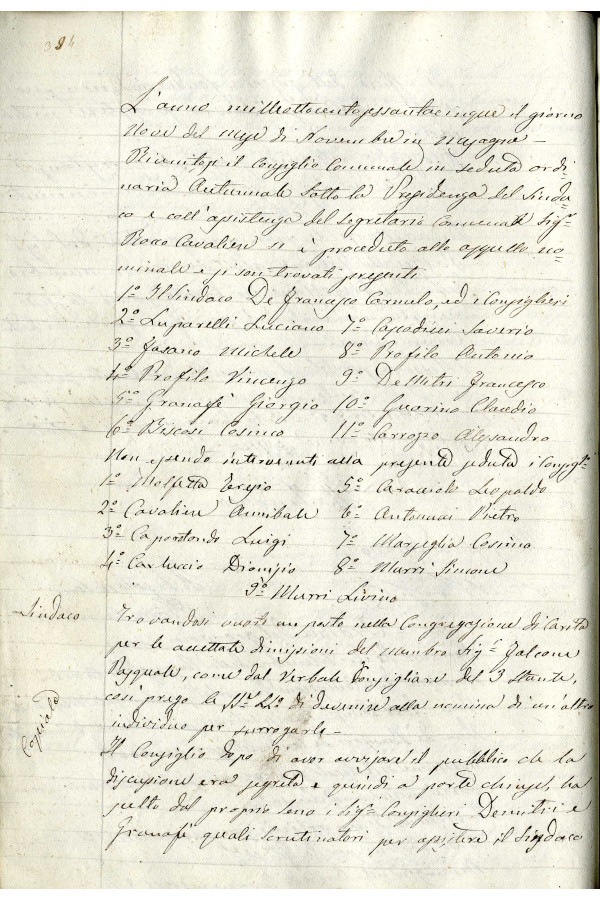 384
L'anno milleottocentosessantacinque il giorno
nove del mese di Novembre in Mesagne -
Riunitosi il Consiglio Comunale in seduta ordi-
naria Autunnale sotto la Presidenza del Sinda-
co e coll'assistenza del Segretario Comunale Sigr
Rocco Cavaliere si è proceduto allo appello no-
minale e si son trovati presenti
1º Il Sindaco De Francesco Carmelo, ed i Consiglieri
2º Luparelli Luciano 7º Capodieci Saverio
3º Fasano Michele 8º Profilo Antonio
4º Profilo Vincenzo 9º Demitri Francesco
5º Granafè Giorgio 10º Guarino Claudio
6º Biscosi Cosimo 11º Carrozzo Alessandro
Non essendo intervenuti alla presente seduta i Consigri
1º Molfetta Terzio 5º Caracciolo Leopoldo
2º Cavaliere Annibale 6º Antonucci Pietro
3º Caporotondi Luigi 7º Marseglia Cosimo
4º Carluccio Dionisio 8º Murri Simone
9º Murri Livino
Sindaco
Trovandosi vuoto un posto nella Congregazione di Carità
per le accettate dimissioni del membro Sigr Falcone
Pasquale, come dal verbale Consigliare del 3 stante,
così prego le di devenire alla nomina di un'altro
individuo per surrogarlo -
Copiata
Il Consiglio dopo di aver avvisato il pubblico che la
discussione era segreta e quindi a porte chiuse, ha
scelto dal proprio seno i Sigri Consiglieri Demitri e
Granafè quali scrutinatori per assistere il Sindaco